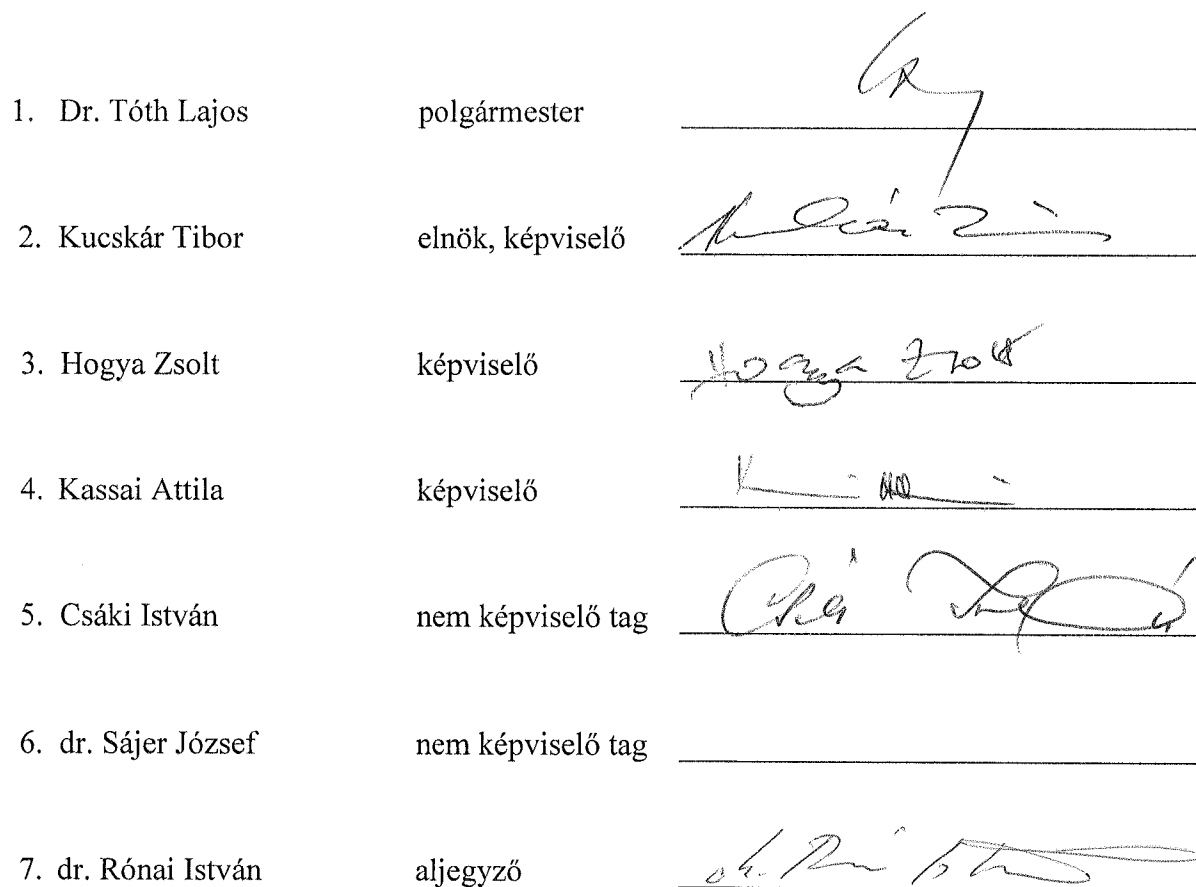 1. Dr. Tóth Lajos polgármester
2. Kucskár Tibor elnök, képviselő
3. Hogya Zsolt képviselő Hogya Zsolt
4. Kassai Attila képviselő
5. Csáki István nem képviselő tag
6. dr. Sájer József nem képviselő tag
7. dr. Rónai István aljegyző